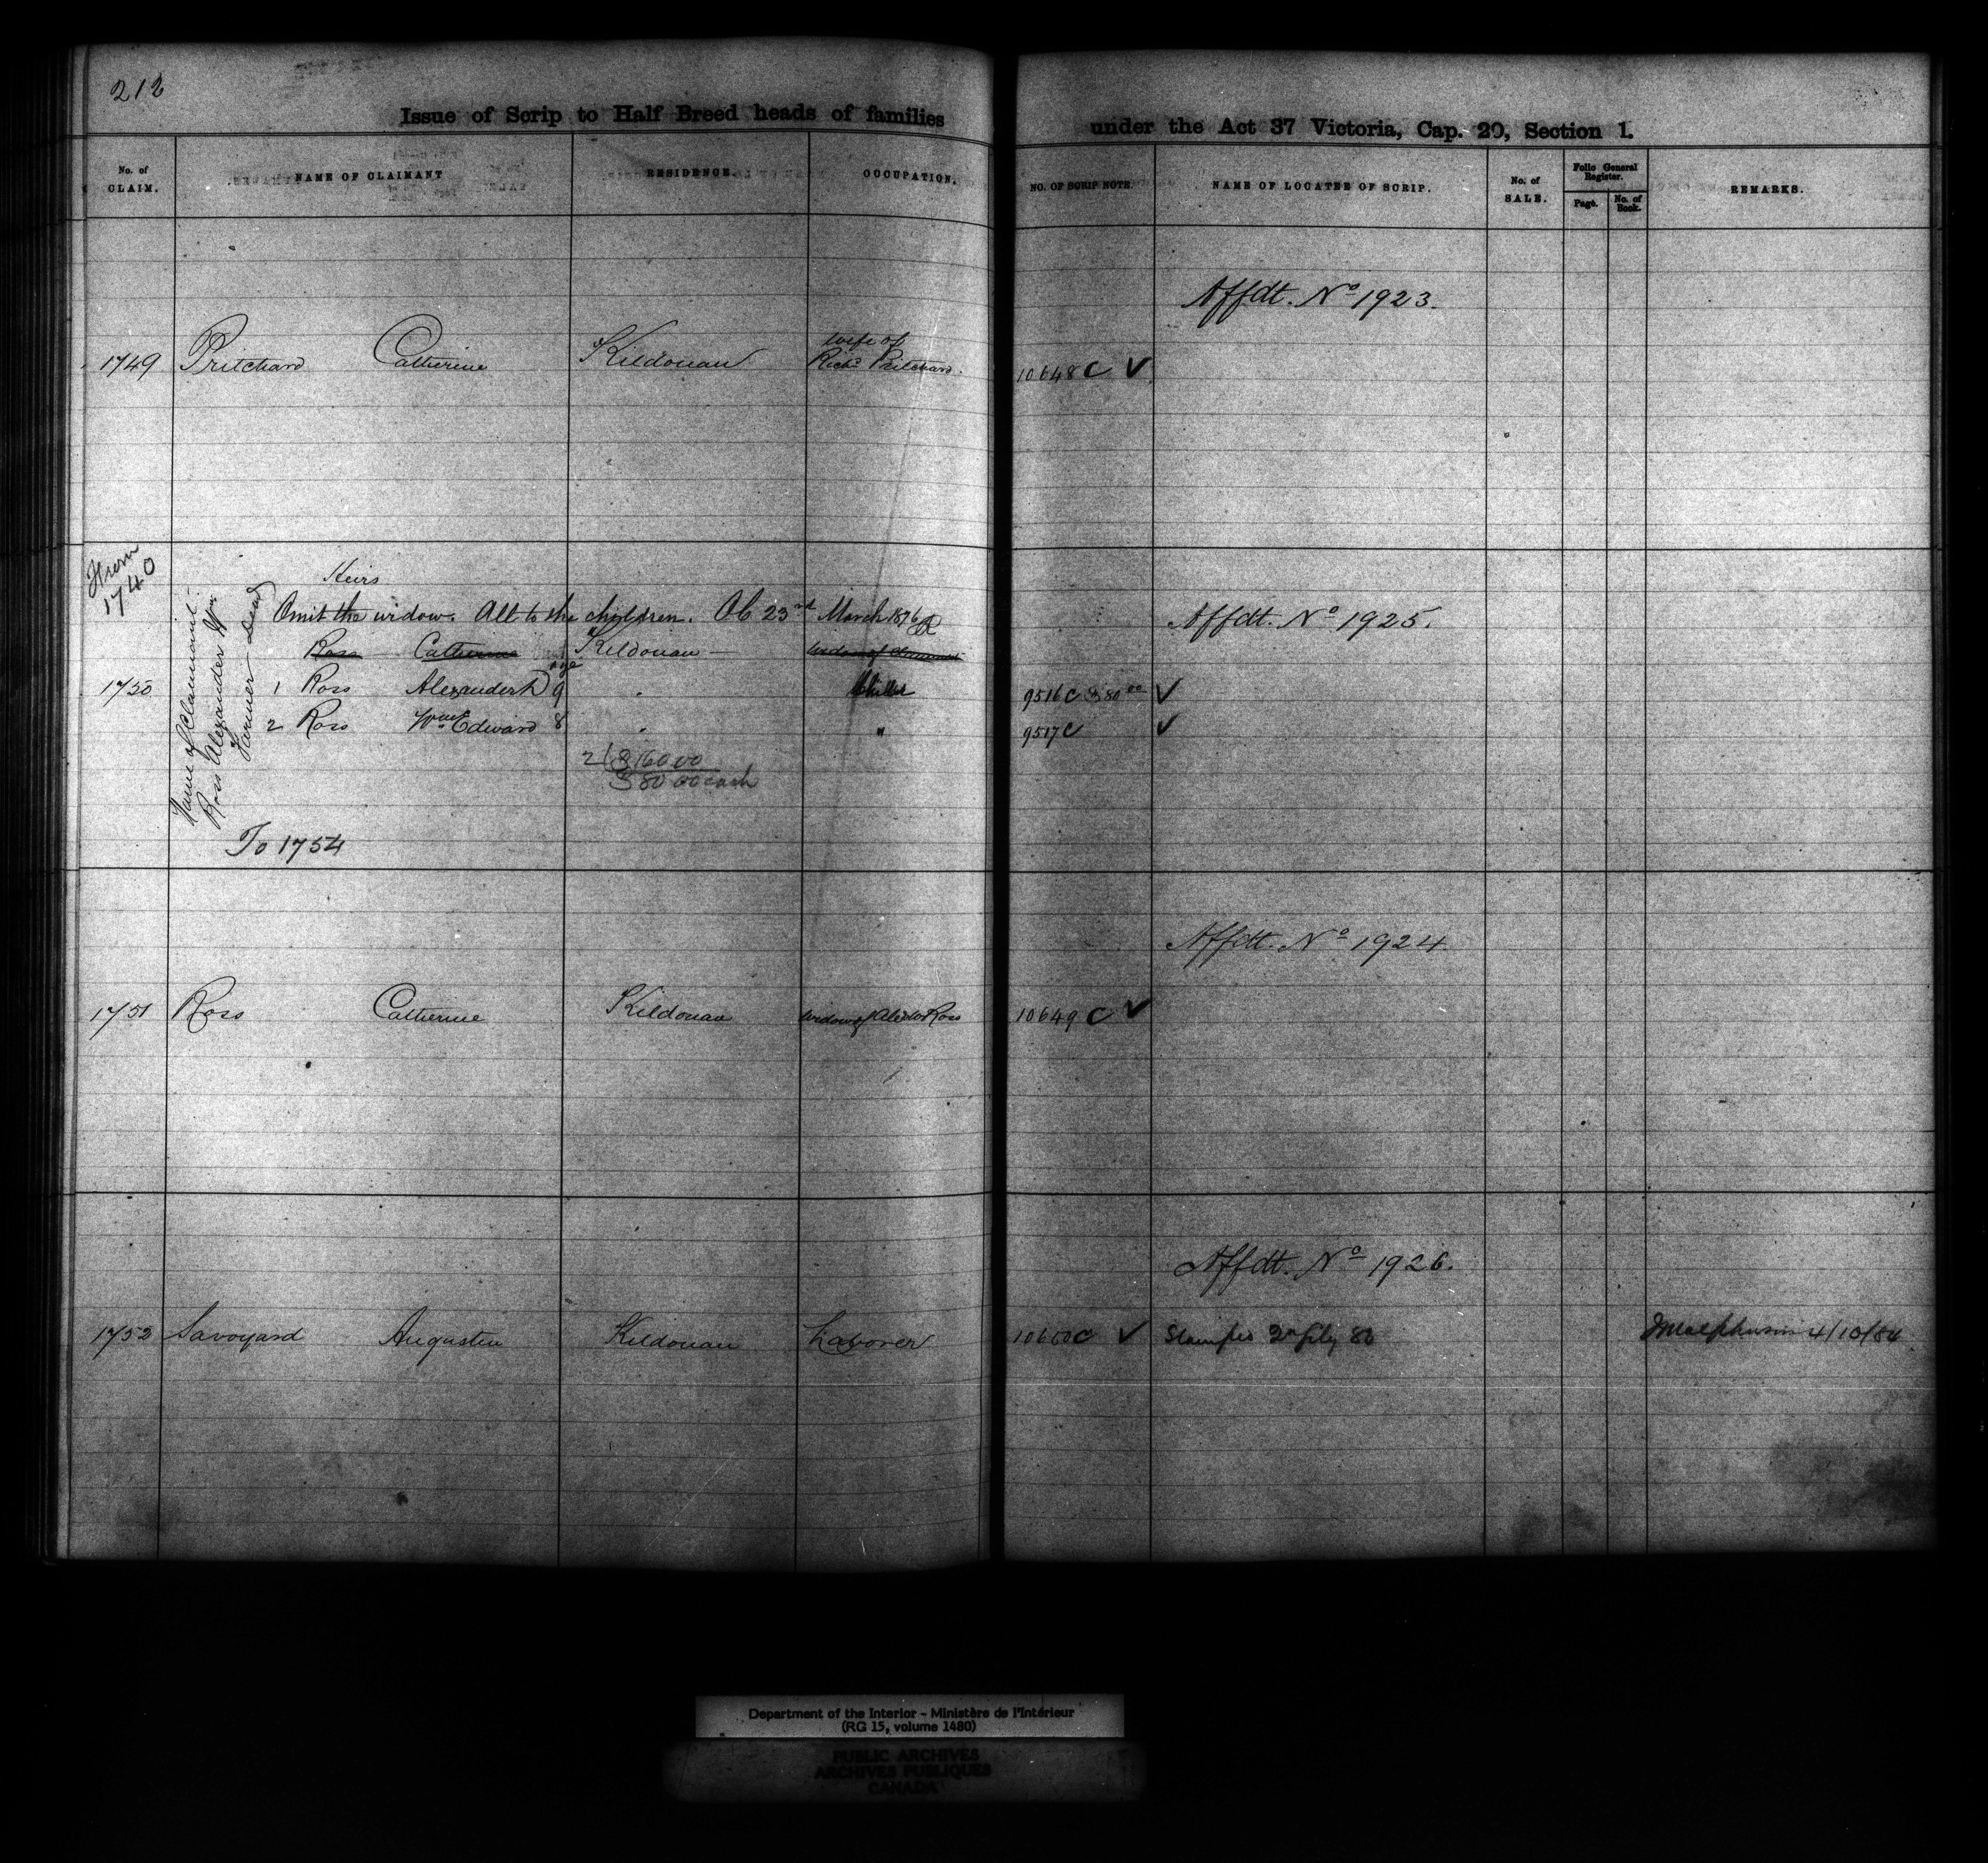 212
Issue of Scrip to Half Breed heads of families under the Act 37 Victoria, Cap. 20, Section 1.
No. of CLAIM. NAME OF CLAIMANT RESIDENCE. OCCUPATION. NO. OF SCRIP NOTE. NAME OF LOCATEE OF SCRIP. No. of SALE. Folio General Register. Page. No. of Book. REMARKS.
Affdt. No 1923.
wife of
1749 Pritchard Catherine Kildonan Richd Pritchard. 10648 C ✓
From 1740
Name of Claimant:
Ross Alexander Wm
Farmer - Dead
Heirs
Omit the widow. All to the children. OC 23rd March 1876
Affdt. No 1925.
Ross Catherine Kildonan widow of claimant
age
1750 1 Ross Alexander 9 " 9516 C $80 00 ✓
2 Ross Wm Edward 8 " " 9517 C ✓
2 $160 00
$80 00 cash
To 1754
Affdt. No 1924
1751 Ross Catherine Kildonan widow of Ross 10649 C ✓
Affdt. No 1926.
1752 Savoyard Augustin Kildonan Laborer 10650 C ✓ 4/10/84
Department of the Interior - Ministère de l'Intérieur
(RG 15, volume 1480)
PUBLIC ARCHIVES
ARCHIVES PUBLIQUES
CANADA